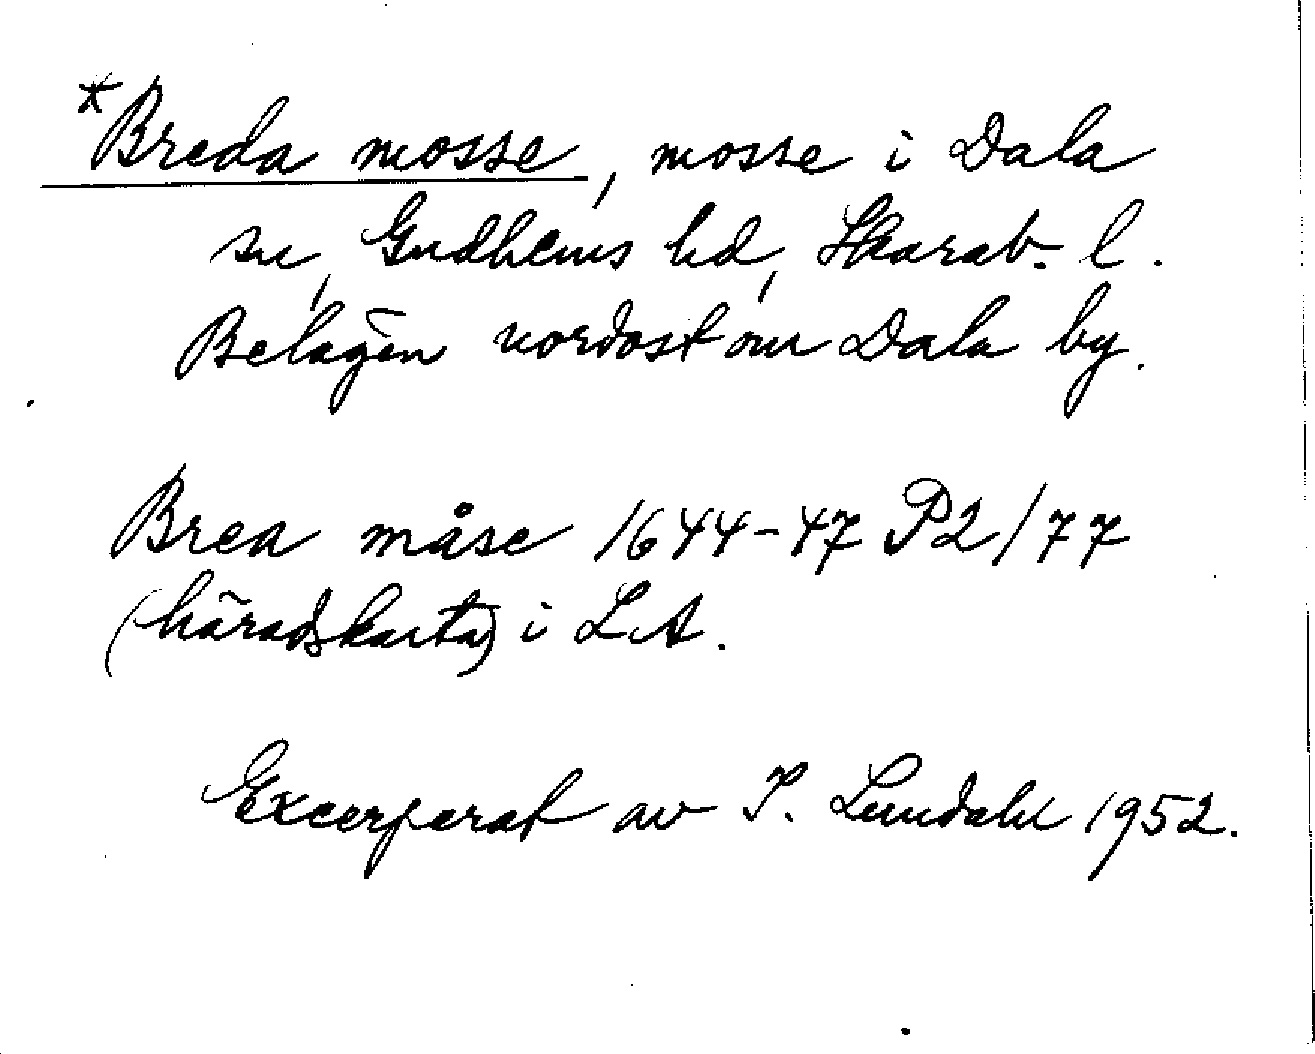 *Breda mosse, mosse i Dala
sn, Gudhems hd, Skarab. l.
Belägen nordost om Dala by.
Brea måse 1644-47 P2/77
(häradskarta) i LA.
Excerperat av I. Lundahl 1952.